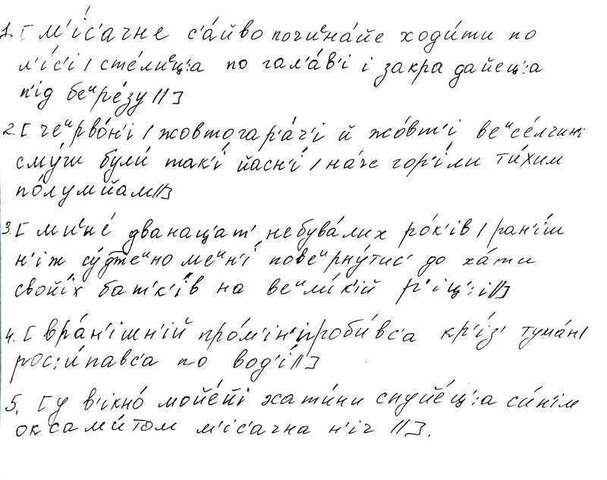 1. [м'íс'ачне с'áйво почиᵉнáйе ходи́ти по
л'íс'і / стéлиц':а по гал'áв'і і закрадáйец':а
п'ід беᵘрéзу //]
2. [чеᵘрвóн'і / жовтогар'áч'і й жóвт'і веᵘсéлчин
смýги були́ так'í йасн'í / нáче гор'íли ти́хим
пóлумйам //]
3. [миᵉнé дванацат' небувáлих рóк'ів / ран'íш
н'іж сýджеᵘно мен'í повеᵘрнýтис' до хáти
свойíх бат'к'íв на веᵘли́кій р'іц':í //]
4. [врáн'ішн'ій прóм'ін' проби́вс'а кр'íз' тумáн /
рос:и́павс'а по вод'í //]
5. [у в'ікнó мойéйі хати́ни снуйéц':а си́н'ім
оксами́том м'íс'ачна н'іч //].